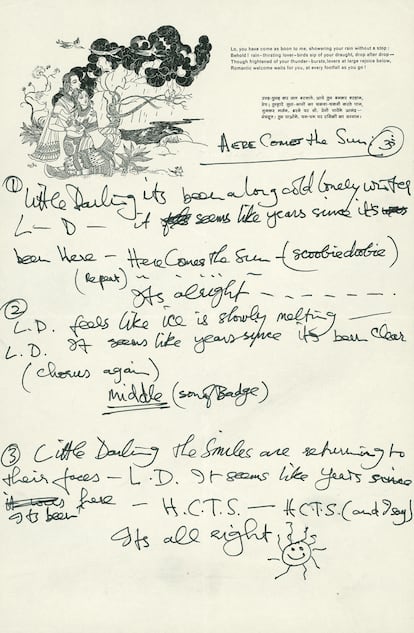 Lo, you have come as boon to me, showering your rain without a stop:
Behold! rain-thirsting lover-birds sip of your draught, drop after drop—
Though frightened of your thunder-bursts, lovers at large rejoice below,
Romantic welcome waits for you, at every footfall as you go!
HERE COMES the Sun. ॐ
① Little Darling its been a long cold lonely winter
L — D — it seems like years since its
been Here — Here Comes the Sun — (scoobiedoobie)
(Repeat)
Its alright — — — — — —
② L.D. feels like ice is slowly melting —
L.D. It seems like years since its been clear
(chorus again)
middle (son of Badge)
③ Little Darling the Smiles are returning to
their faces — L.D. It seems like years since
it was here — H.C.T.S. — HCTS. (and I say)
Its been
Its all right